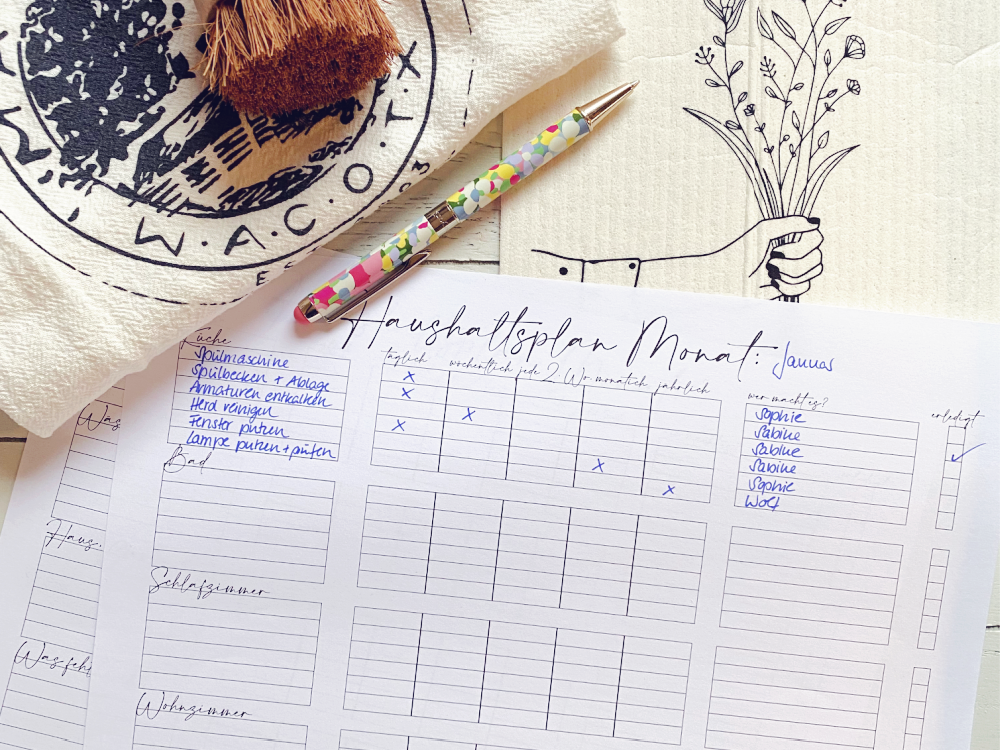 W.A.C.O.T.X
03
Haushaltsplan Monat: Januar
Küche
täglich wöchentlich jede 2. Wo monatlich jährlich
wer macht es?
erledigt
Spülmaschine X Sophie
Spülbecken + Ablage X Sabine
Armaturen entkalken X Sabine ✓
Herd reinigen X Sabine
Fenster putzen X Sophie
Lampe putzen + prüfen X Wolf
Bad
Schlafzimmer
Wohnzimmer
Was
Haus
Was fehl